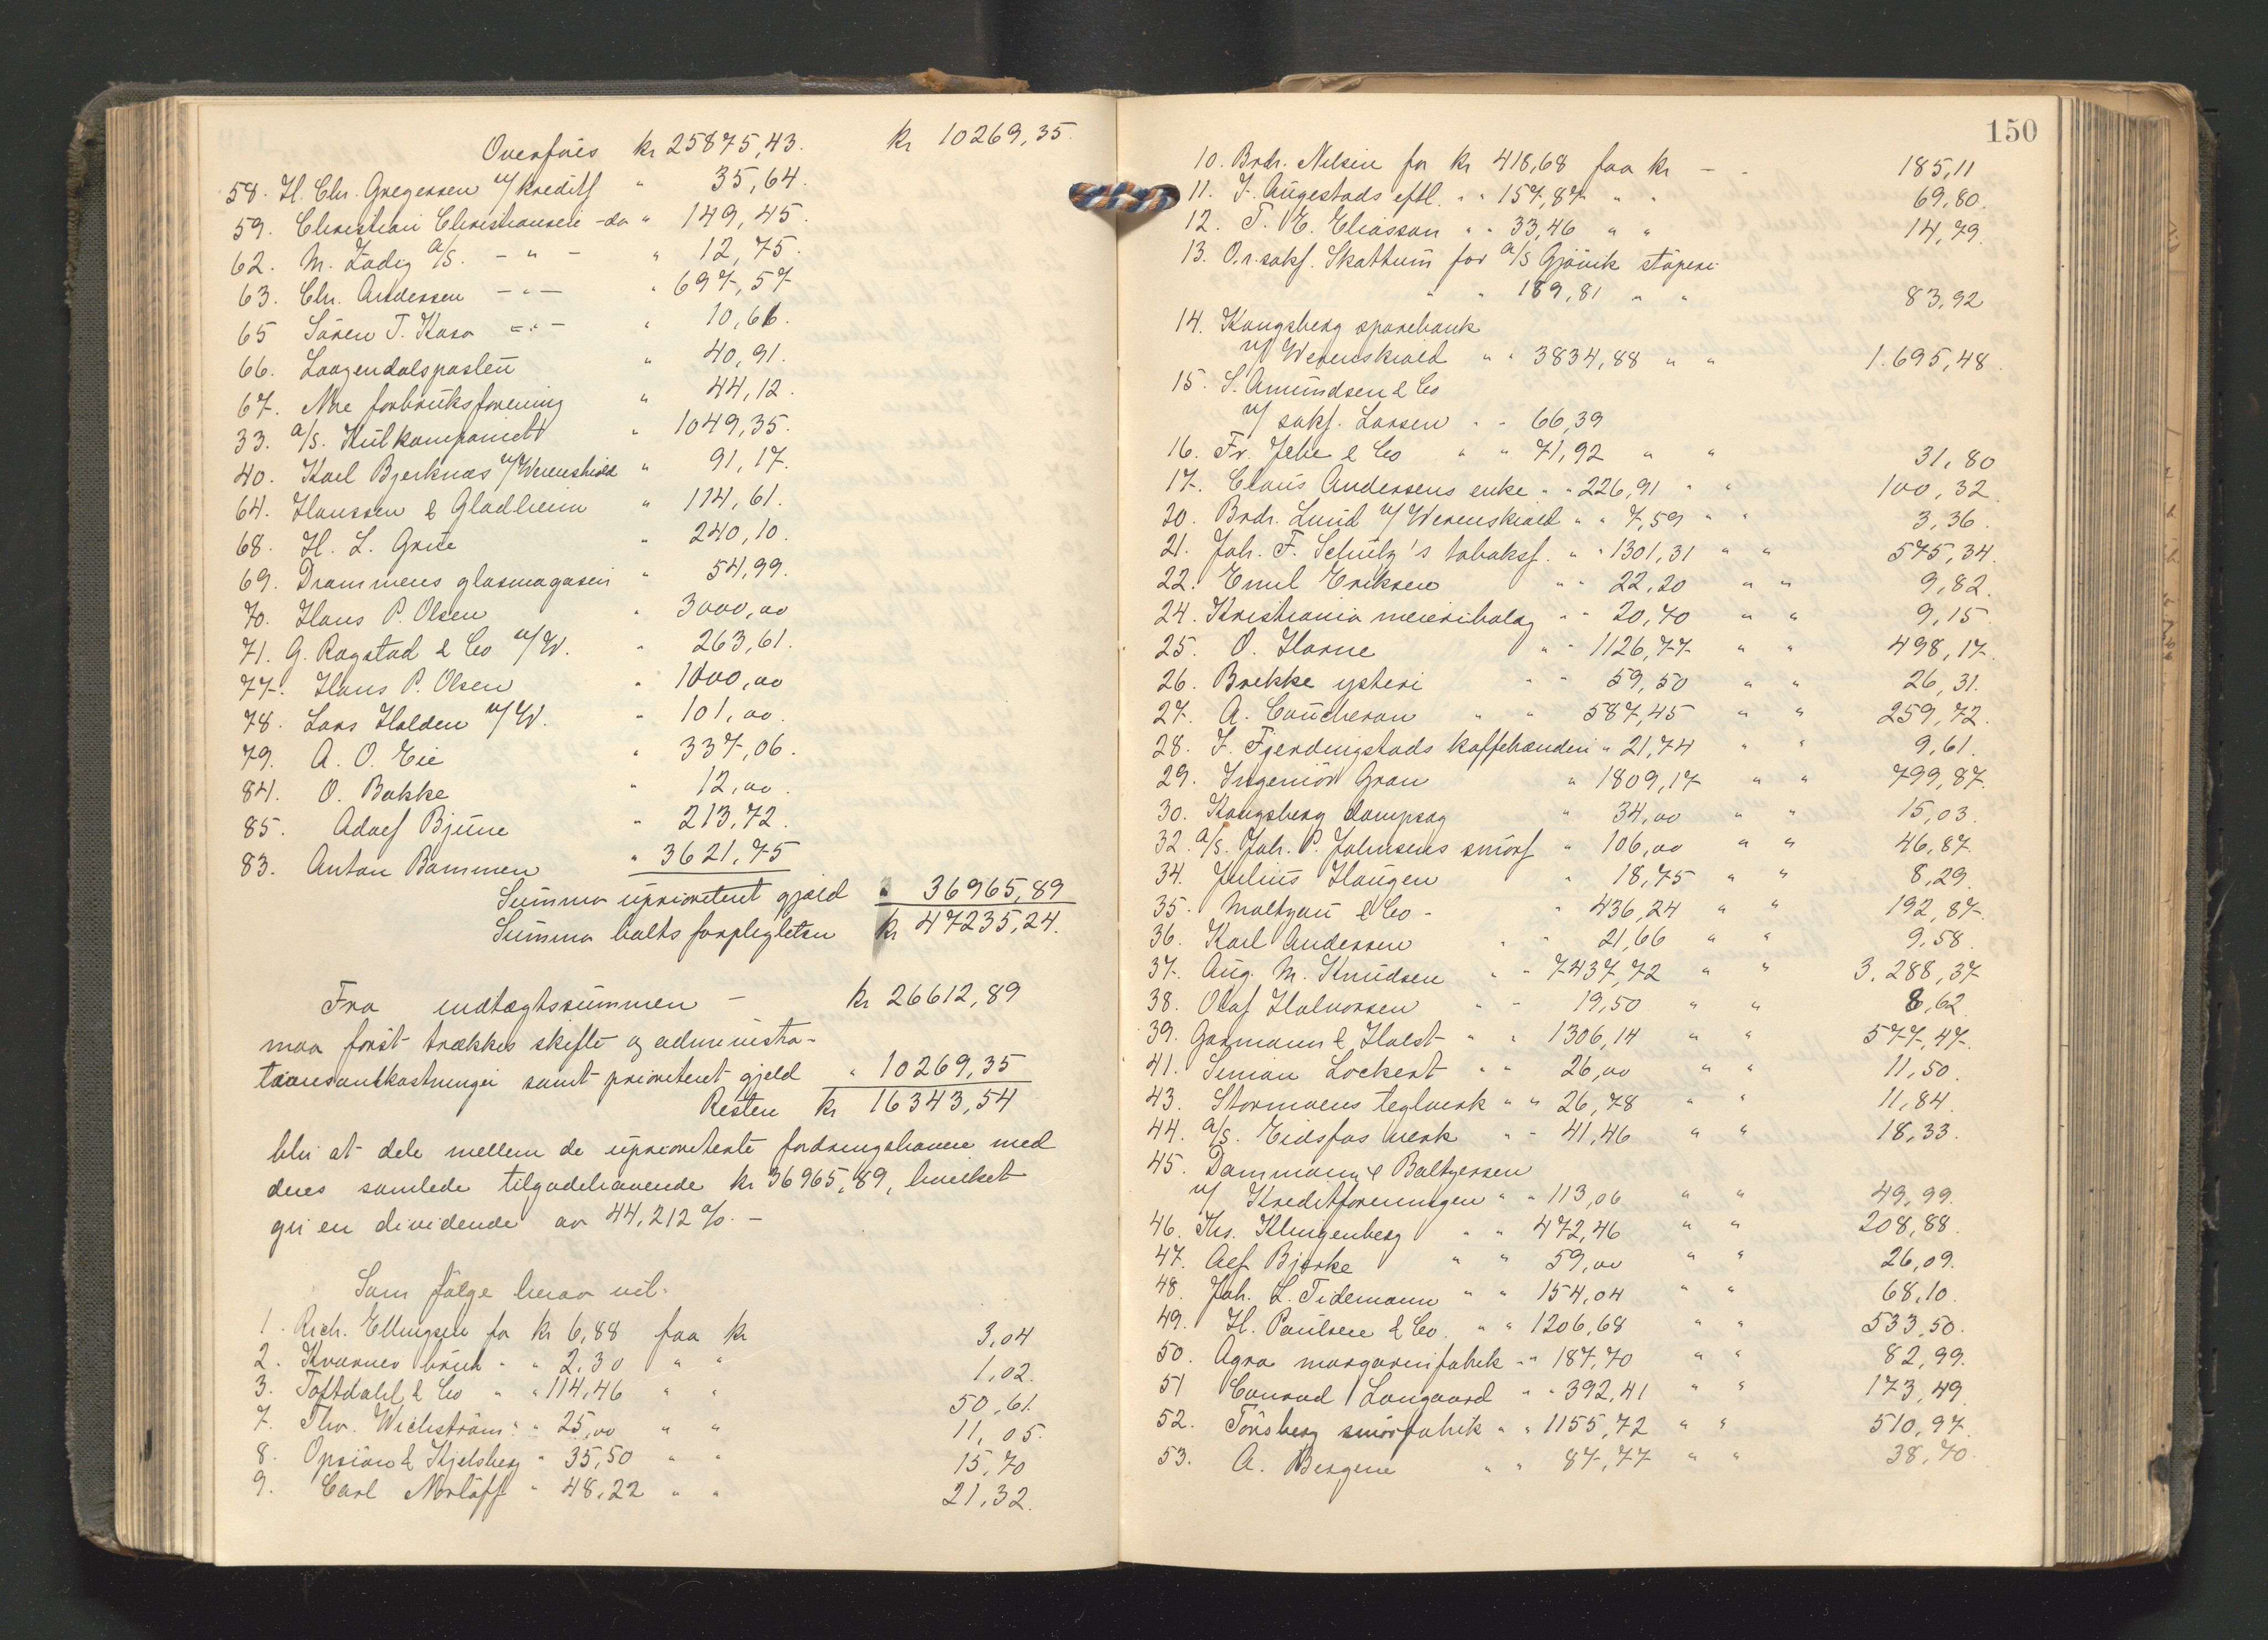 Overføres kr 25875,43. kr 10269,35
58. H. Chr. Gregersen v/ kreditf " 35,64.
59. Christian Christiansen - do " 149,45.
62. M. Zadig A/S. - " - " 12,75.
63. Chr. Andersen - " - " 697,57
65 Sören T. Kasa - " - " 10,66.
66. Laagendalsposten " 40,91.
67. Nore forbruksforening " 44,12.
33. A/S. Kulkompaniett " 1049,35.
40. Karl Bjerknæs v/ Werenskiold " 91,17.
64. Hanssen & Gladheim " 114,61.
68. H. L. Grue " 240,10.
69. Drammens glasmagasin " 54,99.
70. Hans P. Olsen " 3000,00
71. G. Ragstad & Co v/ W. " 263,61.
77. Hans P. Olsen " 1000,00
78. Lars Halden v/ W. " 101,00.
79. A. O. Eie " 337,06.
84. O. Bakke " 12,00.
85. Adolf Bjune " 213,72.
83. Anton Bammen " 3621,75
Summa uprioritert gjæld " 36965,89
Summa boets forpligtelser kr 47235,24.
Fra indtægtssummen - kr 26612,89
maa først trækkes skifte og administra-
tionsomkostninger samt prioritert gjeld " 10269,35
Resten kr 16343,54
blir at dele mellem de uprioriterte fordringshavere med
deres samlede tilgodehavende kr 36965,89, hvilket
gir en dividende av 44,212 %. -
Som følge herav vil.
1. Rich. Ellingsen for kr 6,88 faa kr 3,04
2. Kværner bruk " " 2,30 " " 1,02.
3. Toftdahl & Co " " 114,46 " " 50,61.
7. Thv. Wichstrøm " " 25,00 " " 11,05.
8. Opsiön & Kjelsberg " 35,50 " " 15,70
9. Carl Norløff " 48,22 " " 21,32.
150
10. Brdr. Nilsen for kr 418,68 faa kr - - 185,11
11. J. Augestads eftf. " " 157,87 " " 69,80.
12. T. E. Eliasson " " 33,46 " " 14,79.
13. O.r.sakf. Skattum for A/S Gjövik støperi
" " 189,81 " " 83,92
14. Kongsberg sparebank
v/ Werenskiold " " 3834,88 " " 1.695,48.
15. S. Amundsen & Co
v/ sakf. Larsen " " 66,39
16. Fr. Jebe & Co " " 71,92 " " 31,80
17. Claus Andersens enke " " 226,91 " " 100,32.
20. Brdr. Lund v/ Werenskiold " " 7,59 " " 3,36.
21. Joh. F. Schulz's tobaksf. " " 1301,31 " " 575,34.
22. Emil Eriksen " " 22,20 " " 9,82.
24. Kristiania meieribolag " " 20,70 " " 9,15
25. O. Horne " " 1126,77 " " 498,17.
26. Brekke ysteri " " 59,50 " " 26,31.
27. A. Coucheron " " 587,45 " " 259,72.
28. J. Fjerdingstads kaffebrænderi " 21,74 " " 9,61.
29. Ingeniör Gran " 1809,17 " " 799,87.
30. Kongsberg dampsag " 34,00 " " 15,03.
32. A/S. Joh. P. Johnsens smörf " 106,00 " " 46,87.
34. Julius Haugen " 18,75 " " 8,29.
35. Maltzau & Co - " 436,24 " " 192,87.
36. Karl Andersen " " 21,66 " " 9,58.
37. Aug. M. Knudsen " " 7437,72 " " 3.288,37
38. Olaf Halvorsen " " 19,50 " " 8,62.
39. Garmann & Holst " " 1306,14 " " 577,47.
41. Simon Lockert " " 26,00 " " 11,50.
43. Stormoens teglverk " " 26,78 " " 11,84.
44. A/S. Eidsfos verk " " 41,46 " " 18,33.
45. Dammann & Baltzersen
v/ Kreditforeningen " " 113,06 " " 49,99.
46. Ths. Klingenberg " " 472,46 " " 208,88.
47. Alf Bjerke " " 59,00 " " 26,09.
48. Joh. L. Tidemann " " 154,04 " " 68,10.
49. H. Paulsen & Co. " " 1206,68 " " 533,50.
50. Agra margarinfabrik " " 187,70 " " 82,99.
51 Conrad Langaard " " 392,41 " " 173,49.
52. Tönsberg smörfabrik " " 1155,72 " " 510,97.
53. A. Bergene " " 87,77 " " 38,70.